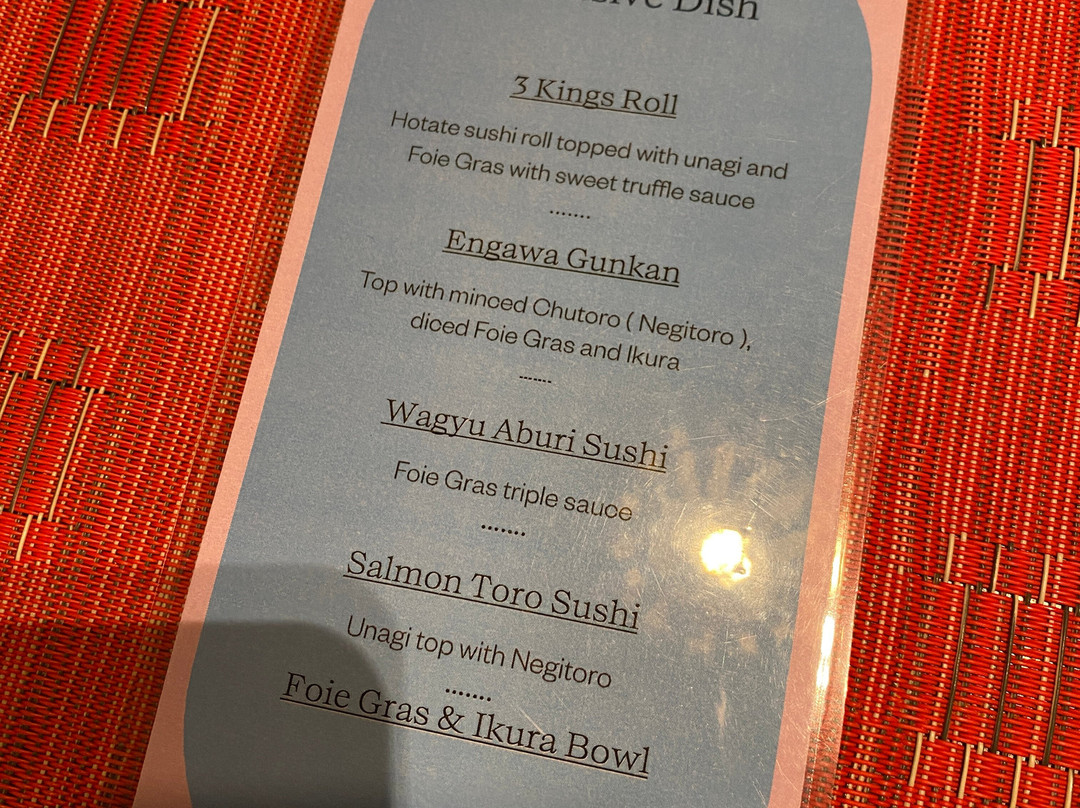 Dish
3 Kings Roll
Hotate sushi roll topped with unagi and
Foie Gras with sweet truffle sauce
.......
Engawa Gunkan
Top with minced Chutoro ( Negitoro ),
diced Foie Gras and Ikura
.......
Wagyu Aburi Sushi
Foie Gras triple sauce
.......
Salmon Toro Sushi
Unagi top with Negitoro
........
Foie Gras & Ikura Bowl